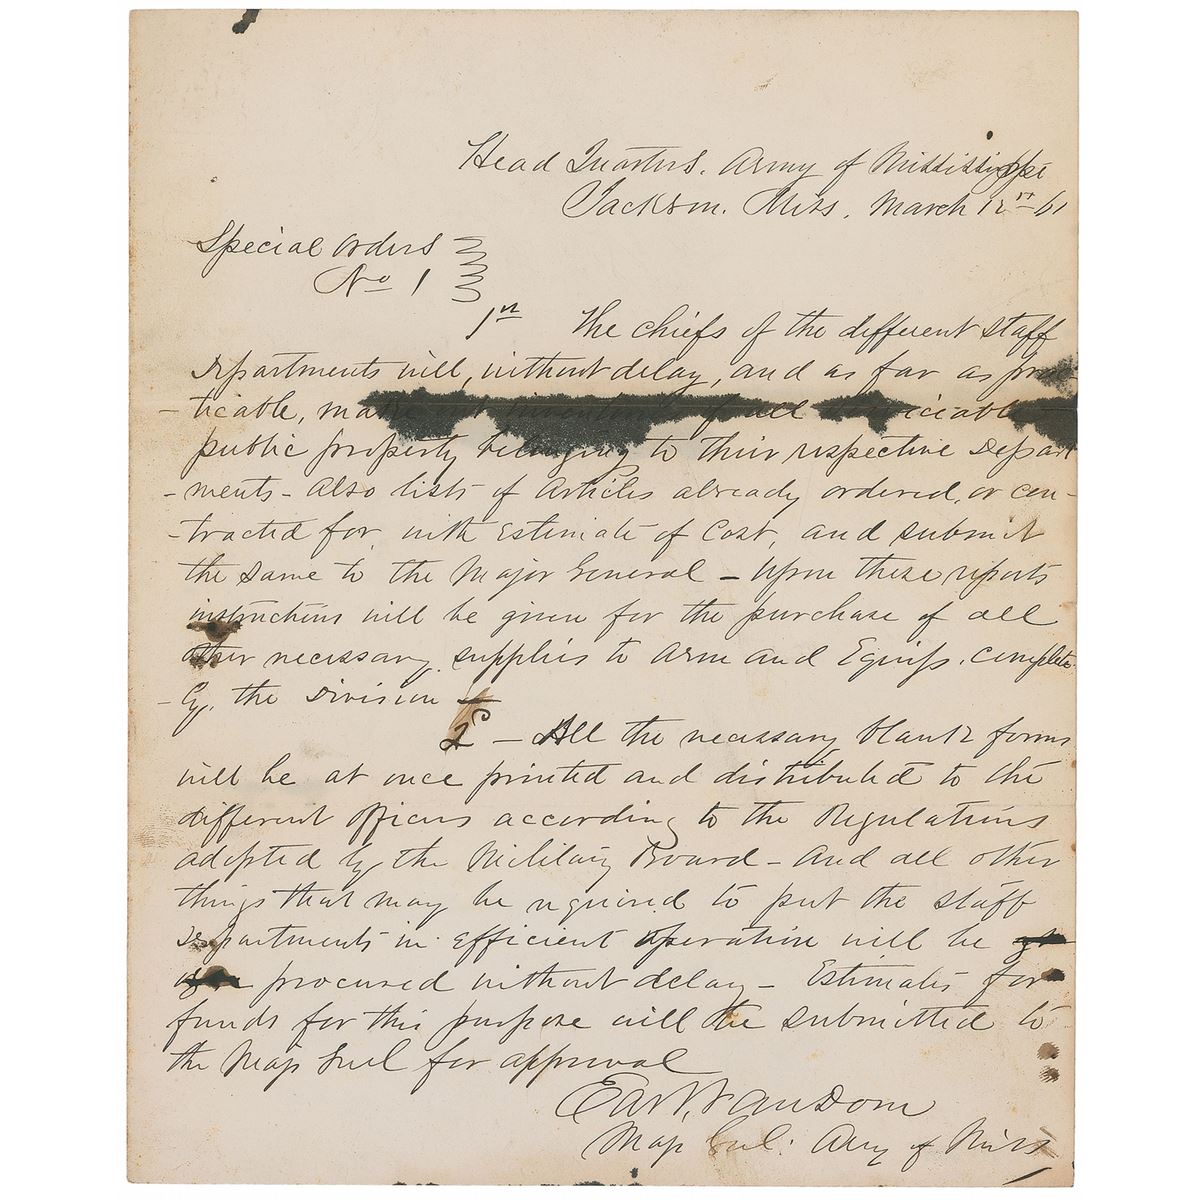 Head Quarters. Army of Mississippi
Jackson. Miss. March 12th 61
Special Orders
No 1
1st The chiefs of the different staff
Departments will, without delay, and as far as prac-
-ticable, make out inventories of all serviciable
public property belonging to their respective Depart
-ments - Also lists of Articles already ordered, or con-
-tracted for, with Estimate of Cost, and submit
the same to the Major General - Upon these reports
instructions will be given for the purchase of all
other necessary supplies to Arm and Equip, complete-
-ly, the Division -
2d - All the necessary blank forms
will be at once printed and distributed to the
different Officers according to the Regulations
adopted by the Military Board - And all other
things that may be required to put the staff
Departments in efficient operation will be
procured without delay - Estimates for
funds for this purpose will be submitted to
the Maj Genl for approval
Earl Van Dorn
Maj Genl: Army of Miss